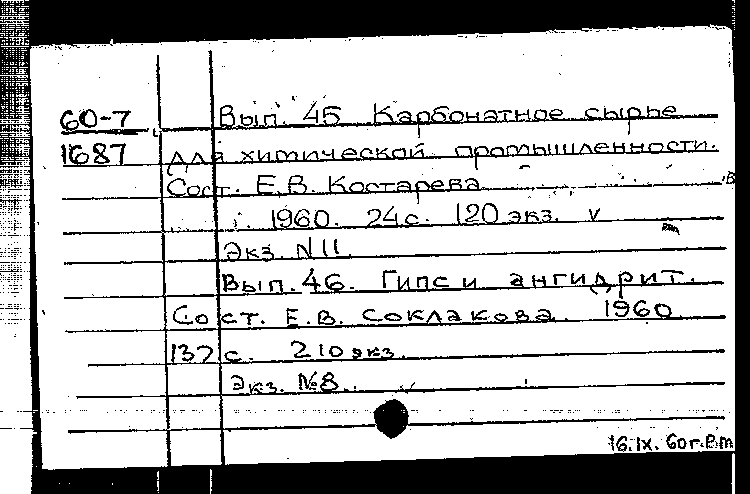 60-7 Вып. 45 Карбонатное сырье
1687 для химической промышленности.
Сост. Е.В. Костарева
1960. 24 с. 120 экз. v
Экз. N 11
Вып. 46. Гипс и ангидрит.
Сост. Е.В. Соклакова. 1960
137 с. 210 экз.
Экз. №8.
16.IX.60г.